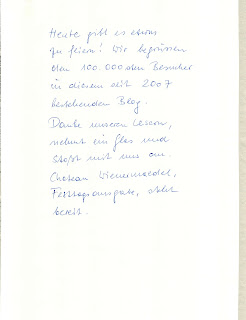 Heute gibt es etwas
zu feiern! Wir begrüssen
den 100.000den Besucher
in diesem seit 2007
bestehenden Blog.
Danke unseren Lesern,
nehmt ein Glas und
stoßt mit uns an.
Chateau Wienerwaldel,
Festtagsausgabe, steht
bereit.